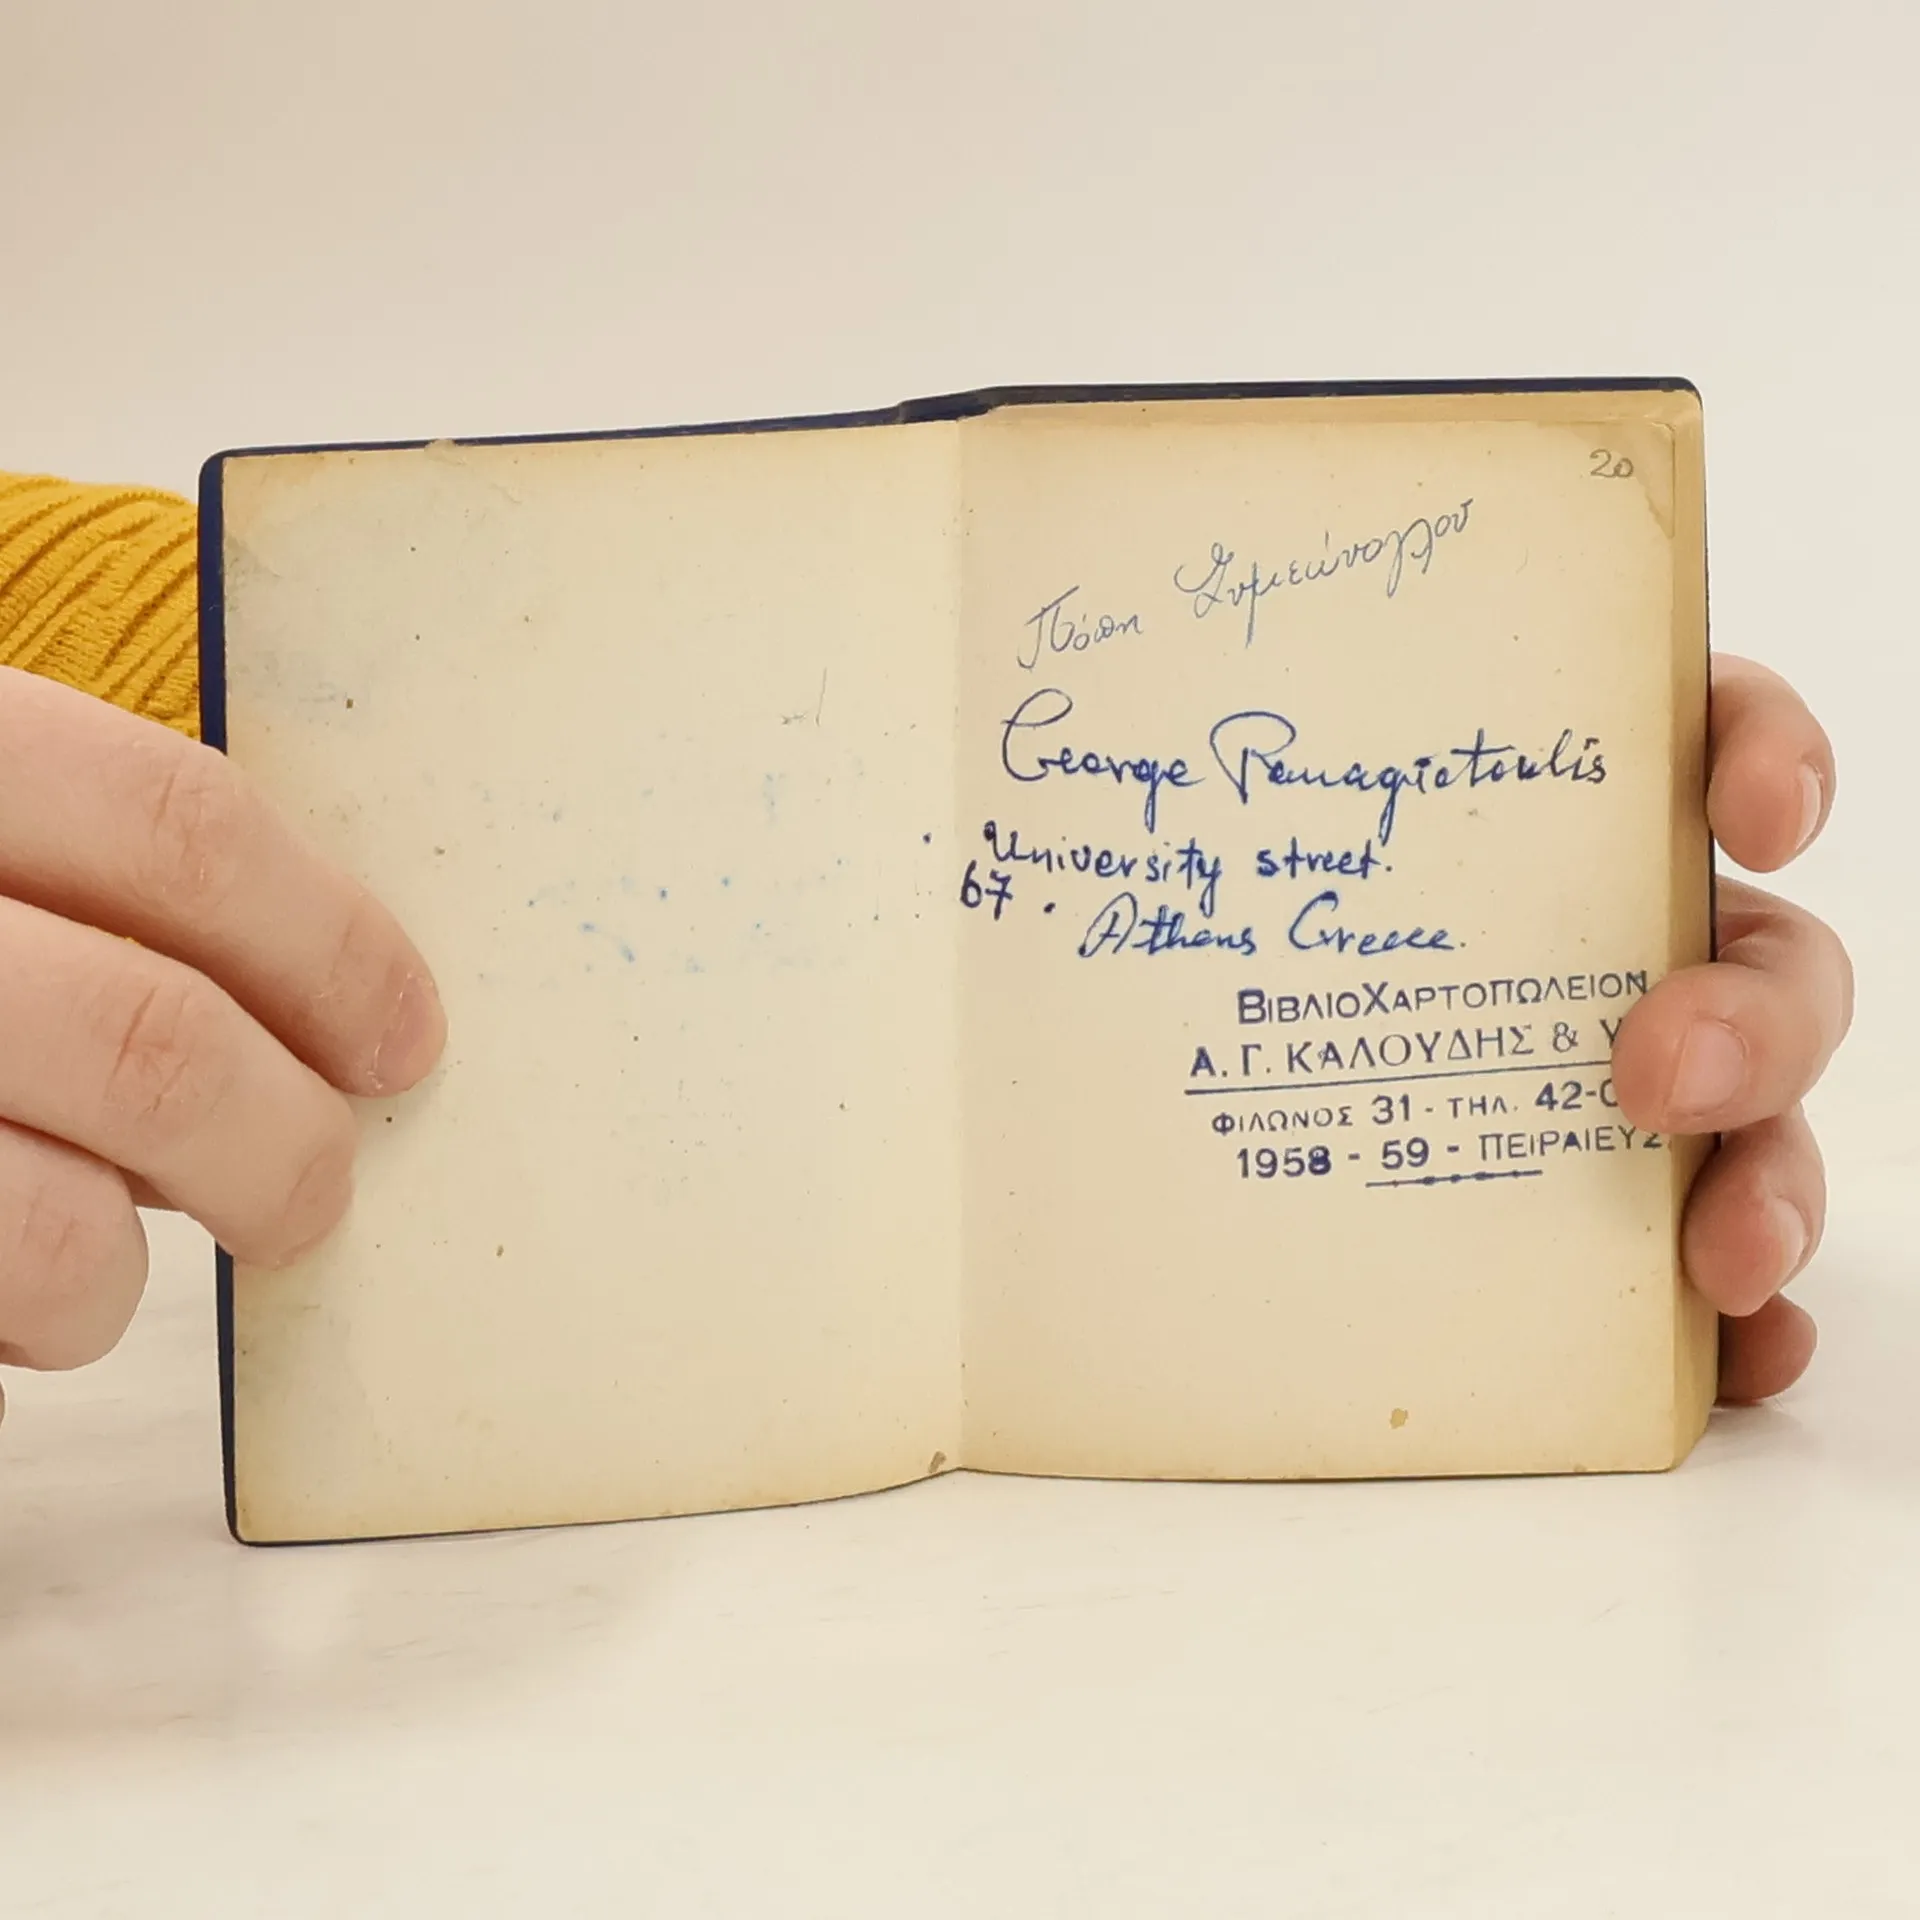 20
Πόπη Συμεώνογλου
George Panagiotoulis
University street.
67. Athens Greece.
ΒΙΒΛΙΟΧΑΡΤΟΠΩΛΕΙΟΝ
Α. Γ. ΚΑΛΟΥΔΗΣ & Υ
ΦΙΛΩΝΟΣ 31 - ΤΗΛ. 42-0
1958 - 59 - ΠΕΙΡΑΙΕΥΣ